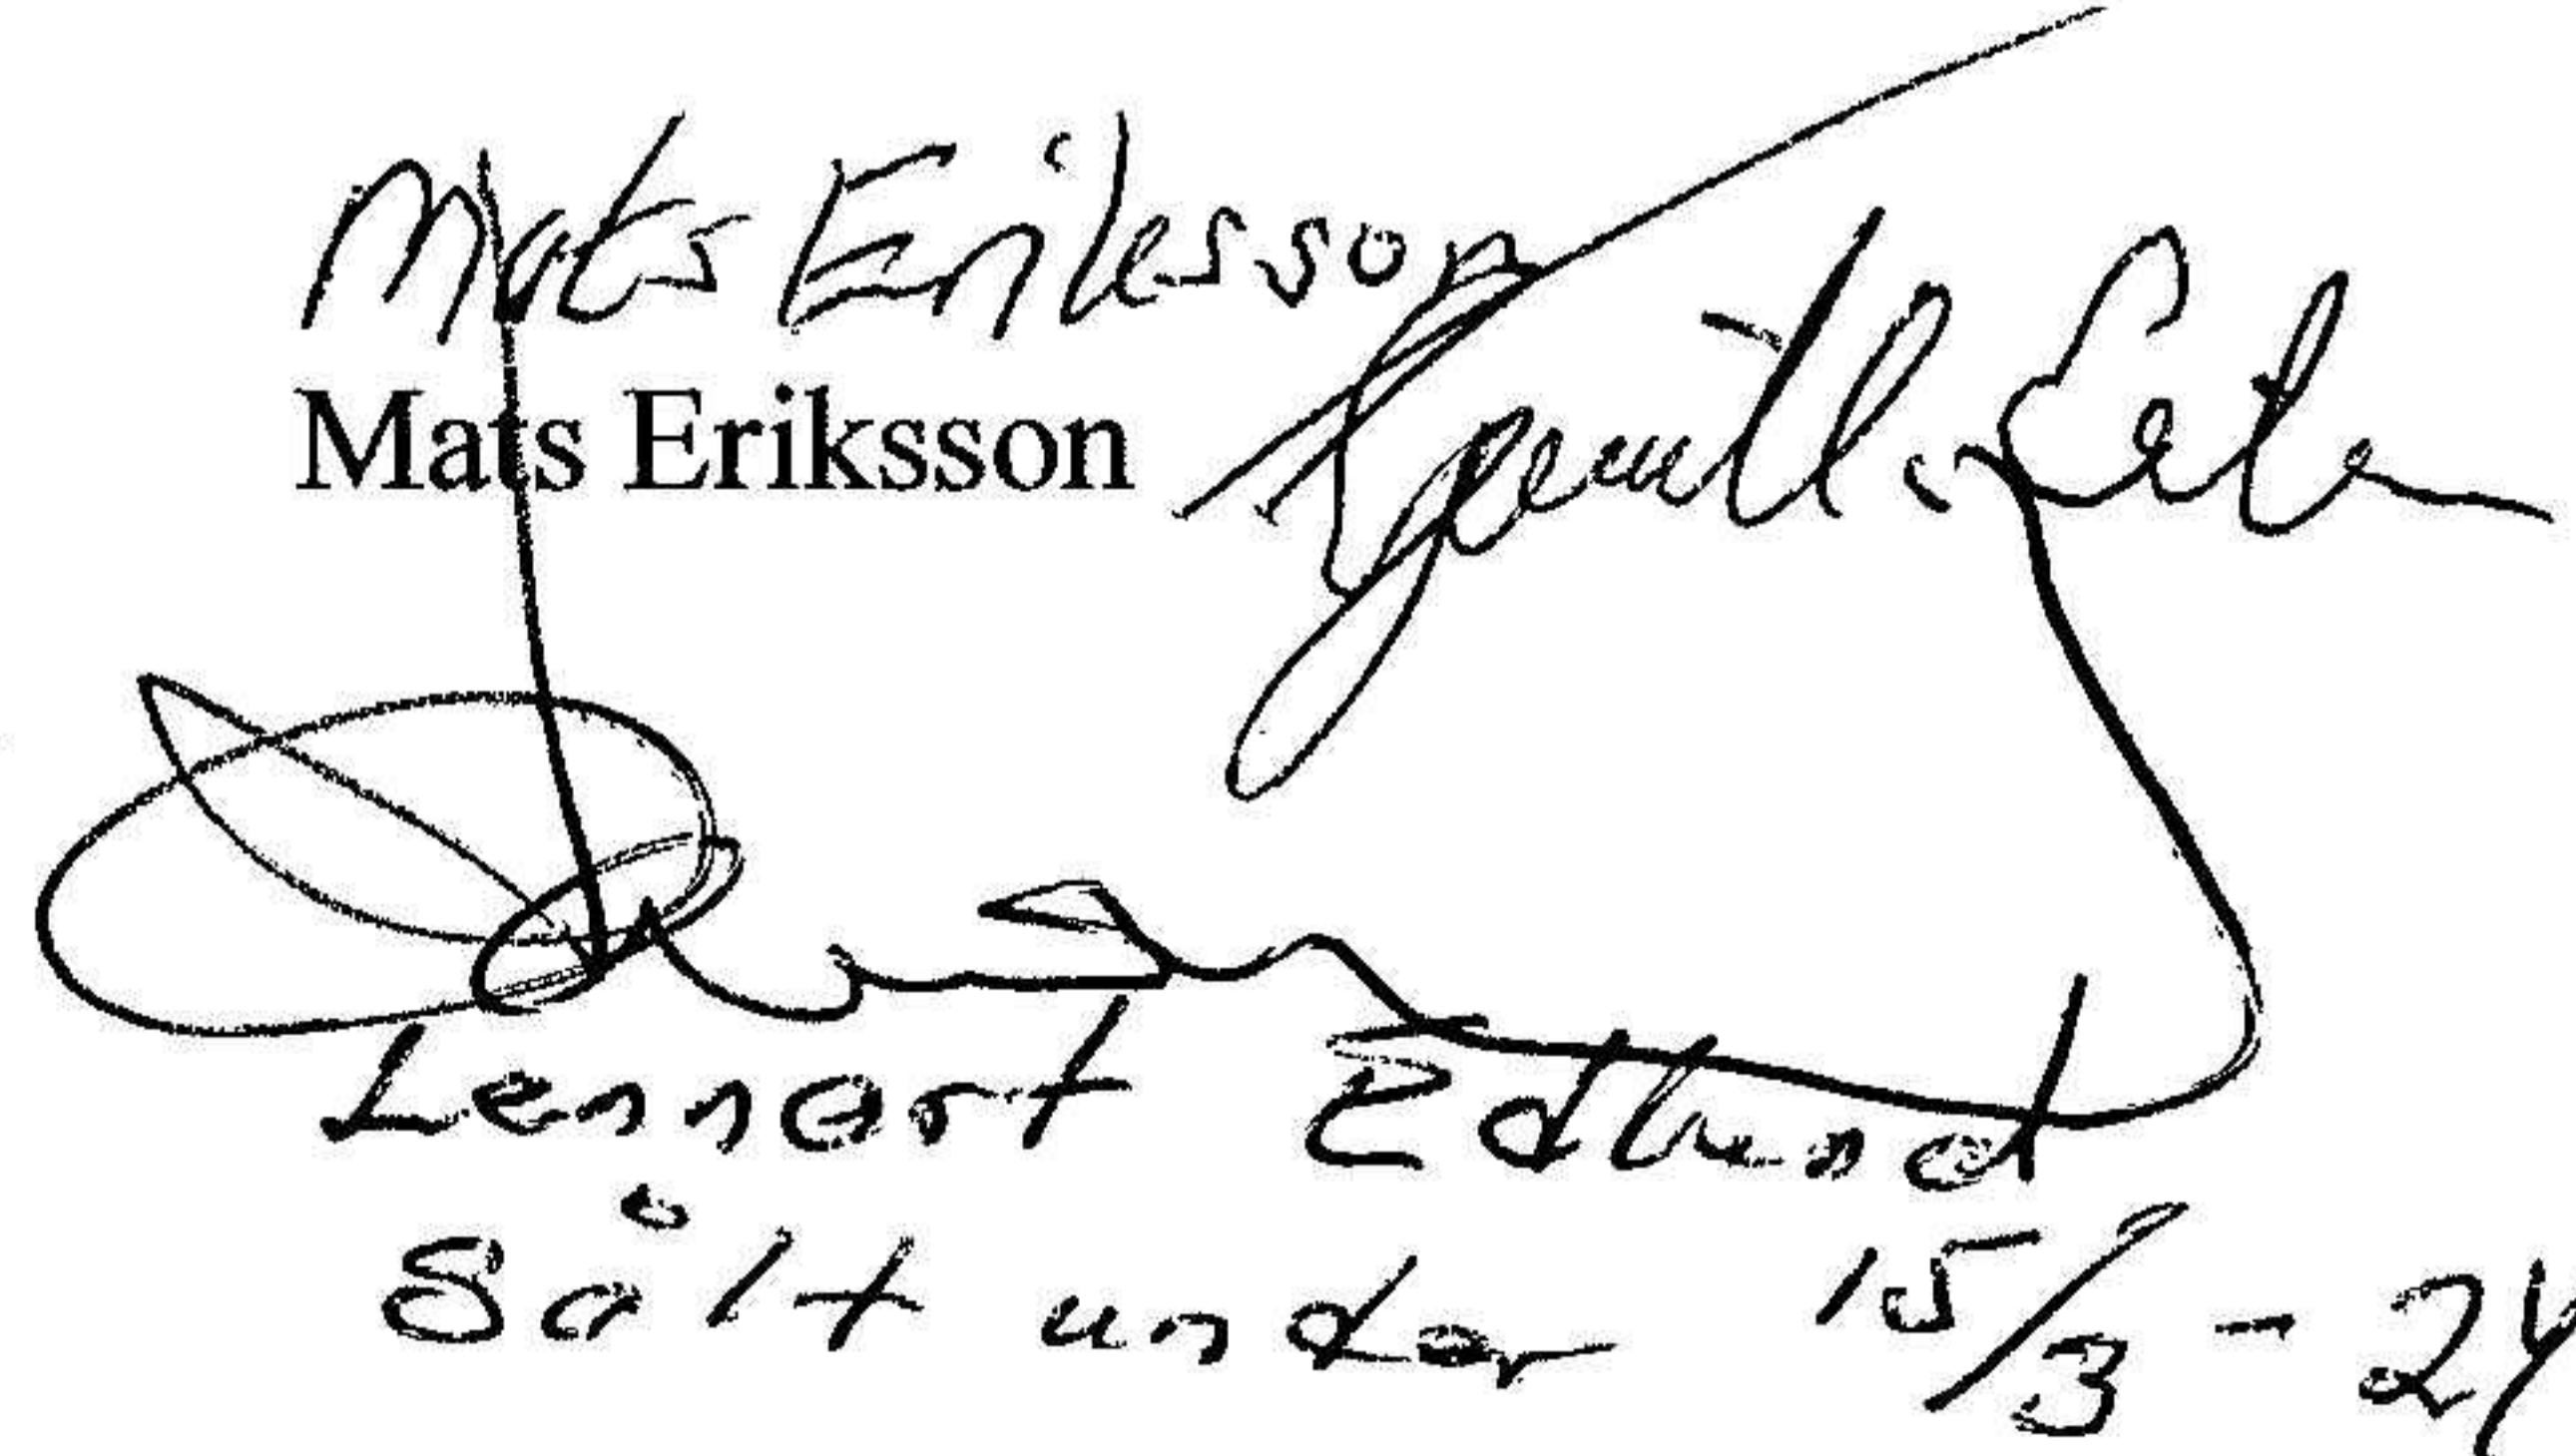 Mats Eriksson
Mats Eriksson
Lennart Edlund
Sålt under 15/3-24